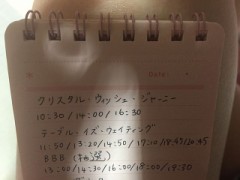 Date
クリスタル・ウィッシュ・ジャーニー
10:30/14:00/16:30
テーブル・イズ・ウェイティング
11:50/13:20/14:50/17:10/18:45/20:45
BBB (抽選)
13:00/14:30/16:00/18:00/19:30